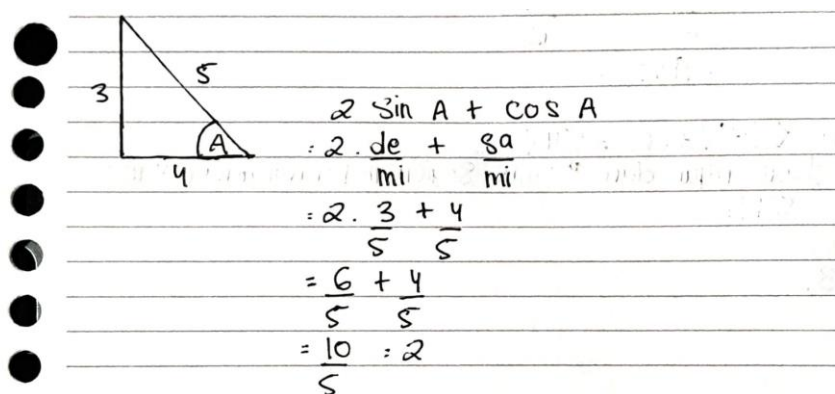 3
5
A
4
2 sin A + cos A
= 2 . de/mi + sa/mi
= 2 . 3/5 + 4/5
= 6/5 + 4/5
= 10/5 = 2